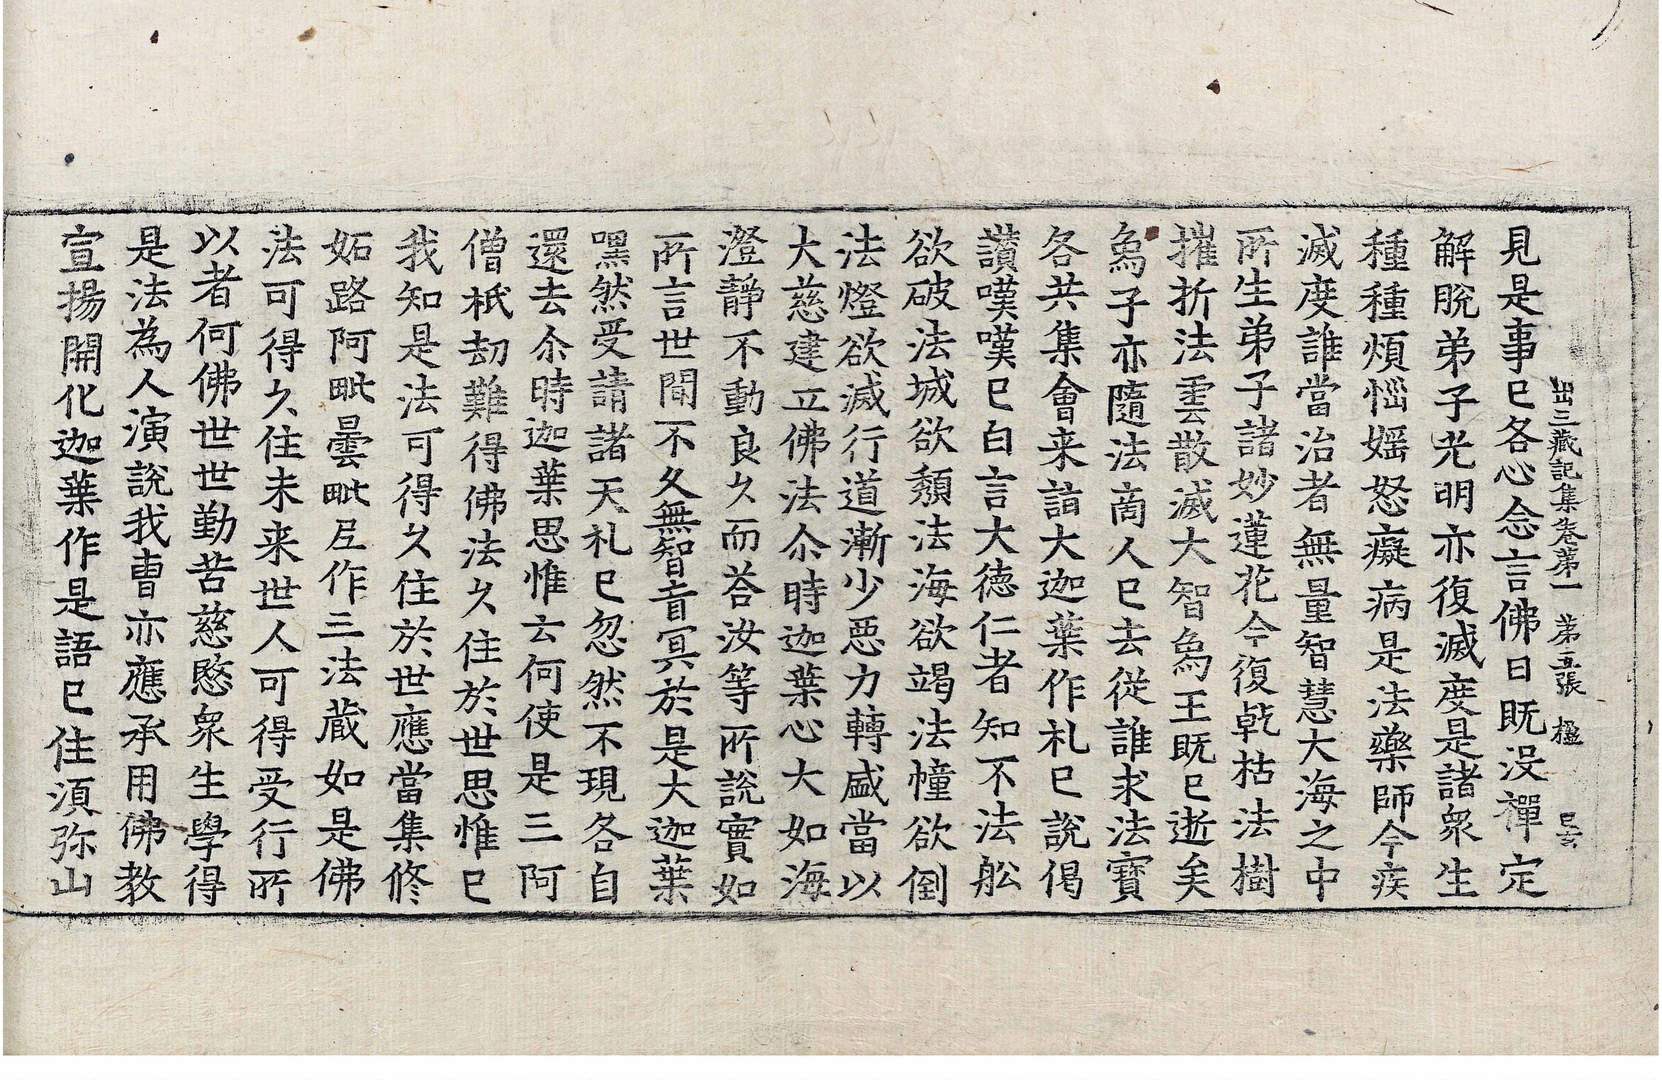 出三藏記集卷第一 第五張 楹 己亥
見是事已各心念言佛日既没禪定
解脫弟子光明亦復滅度是諸衆生
種種煩惱婬怒癡病是法藥師今疾
滅度誰當治者無量智慧大海之中
所生弟子諸妙蓮花今復乹枯法樹
摧折法雲散滅大智象王既已逝矣
象子亦隨法商人已去從誰求法寶
各共集會来詣大迦葉作礼已說偈
讃嘆嘆已白言大德仁者知不法舩
欲破法城欲頹法海欲竭法幢欲倒
法燈欲滅行道漸少惡力轉盛當以
大慈建立佛法尒時迦葉心大如海
澄靜不動良久而荅汝等所說實如
所言世間不久無智盲冥於是大迦葉
嘿然受請諸天礼已忽然不現各自
還去尒時迦葉思惟云何使是三阿
僧祇劫難得佛法久住於世思惟已
我知是法可得久住於世應當集修
妬路阿毗曇毗尼作三法藏如是佛
法可得久住未来世人可得受行所
以者何佛世世勤苦慈愍衆生學得
是法為人演說我曹亦應承用佛教
宣揚開化迦葉作是語已住須弥山